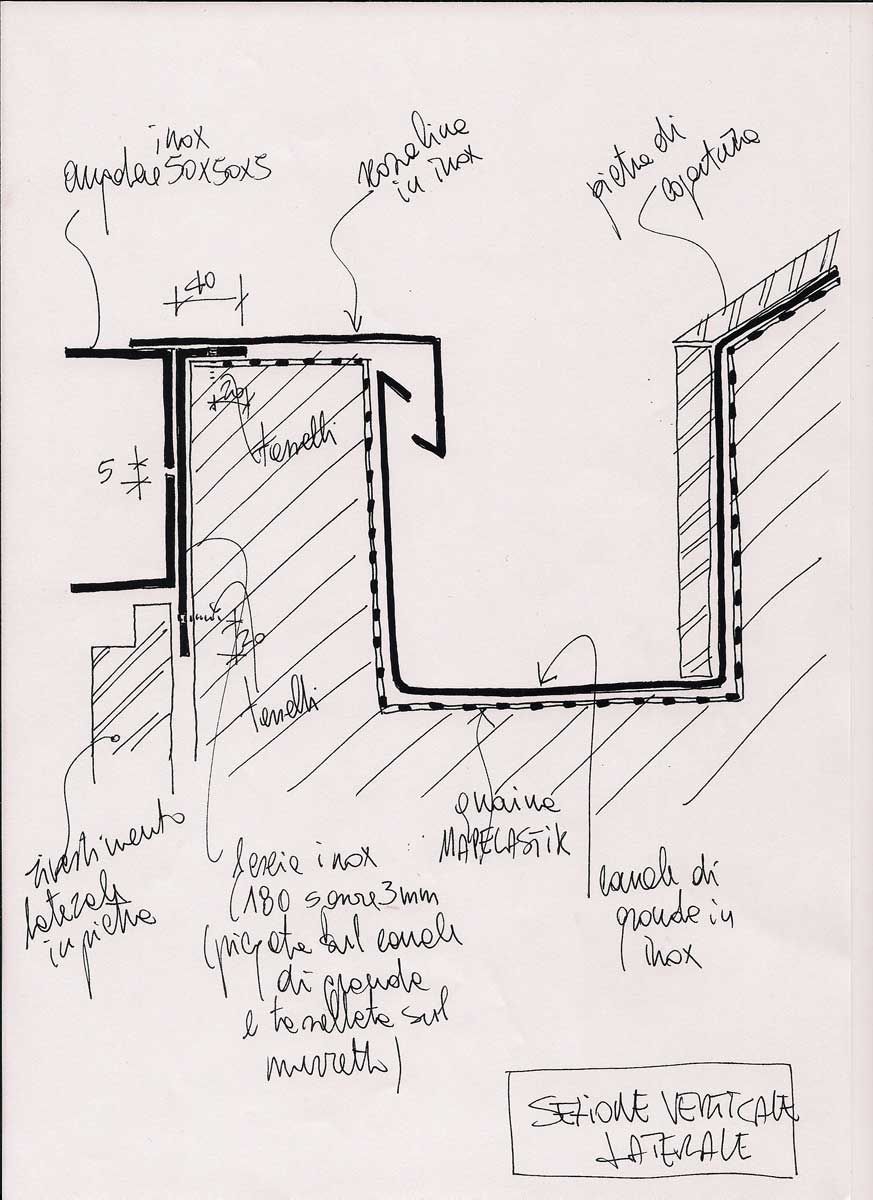 inox
angolare 50x50x5
scossalina
in inox
pietra di
copertura
40
20
tasselli
5
20
tasselli
rivestimento
laterale
in pietra
fascia inox
(180 spess. 3mm
(piegata sul canale
di gronda
e tassellata sul
muretto)
guaina
MAPELASTIK
canale di
gronda in
inox
SEZIONE VERTICALE
LATERALE